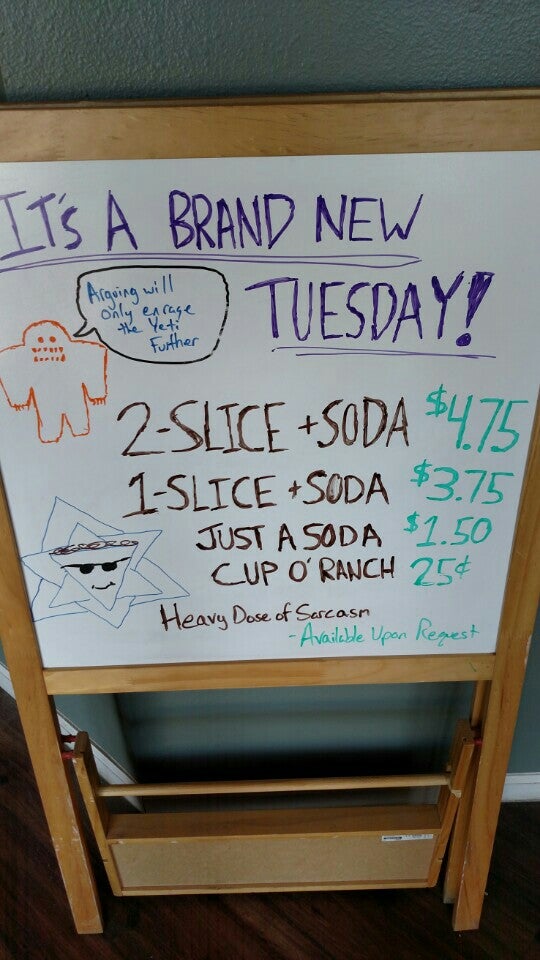 IT'S A BRAND NEW
TUESDAY!
Arguing will
only enrage
the Yeti
Further
2-SLICE + SODA $4.75
1-SLICE + SODA $3.75
JUST A SODA $1.50
CUP O' RANCH 25¢
Heavy Dose of Sarcasm
- Available Upon Request